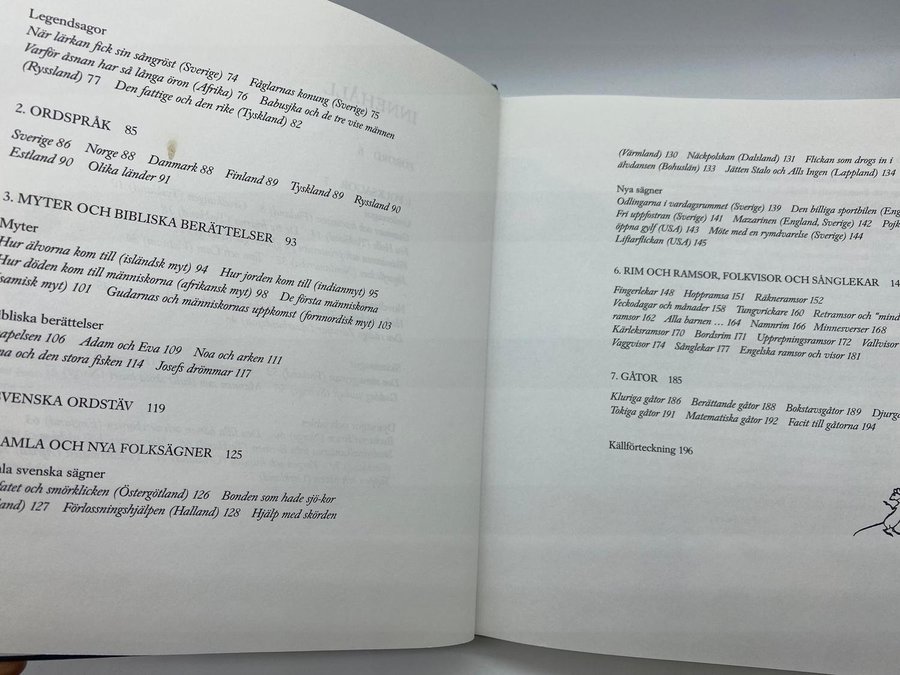 Legendsagor
När lärkan fick sin sångröst (Sverige) 74 Fåglarnas konung (Sverige) 75
Varför åsnan har så långa öron (Afrika) 76 Babusjka och de tre vise männen
(Ryssland) 77 Den fattige och den rike (Tyskland) 82
2. ORDSPRÅK 85
Sverige 86 Norge 88 Danmark 88 Finland 89 Tyskland 89 Ryssland 90
Estland 90 Olika länder 91
3. MYTER OCH BIBLISKA BERÄTTELSER 93
Myter
Hur älvorna kom till (isländsk myt) 94 Hur jorden kom till (indianmyt) 95
Hur döden kom till människorna (afrikansk myt) 98 De första människorna
(samisk myt) 101 Gudarnas och människornas uppkomst (fornnordisk myt) 103
bliska berättelser
apelsen 106 Adam och Eva 109 Noa och arken 111
na och den stora fisken 114 Josefs drömmar 117
SVENSKA ORDSTÄV 119
AMLA OCH NYA FOLKSÄGNER 125
la svenska sägner
fatet och smörklicken (Östergötland) 126 Bonden som hade sjö-kor
land) 127 Förlossningshjälpen (Halland) 128 Hjälp med skörden
(Värmland) 130 Näckpolskan (Dalsland) 131 Flickan som drogs in i
älvdansen (Bohuslän) 133 Jätten Stalo och Alls Ingen (Lappland) 134
Nya sägner
Odlingarna i vardagsrummet (Sverige) 139 Den billiga sportbilen (Eng
Fri uppfostran (Sverige) 141 Mazarinen (England, Sverige) 142 Pojk
öppna gylf (USA) 143 Möte med en rymdvarelse (Sverige) 144
Liftarflickan (USA) 145
6. RIM OCH RAMSOR, FOLKVISOR OCH SÅNGLEKAR 14
Fingerlekar 148 Hoppramsa 151 Räkneramsor 152
Veckodagar och månader 158 Tungvrickare 160 Retramsor och "mind
ramsor 162 Alla barnen … 164 Namnrim 166 Minnesverser 168
Kärleksramsor 170 Bordsrim 171 Upprepningsramsor 172 Vallvisor
Vaggvisor 174 Sånglekar 177 Engelska ramsor och visor 181
7. GÅTOR 185
Kluriga gåtor 186 Berättande gåtor 188 Bokstavsgåtor 189 Djurgå
Tokiga gåtor 191 Matematiska gåtor 192 Facit till gåtorna 194
Källförteckning 196